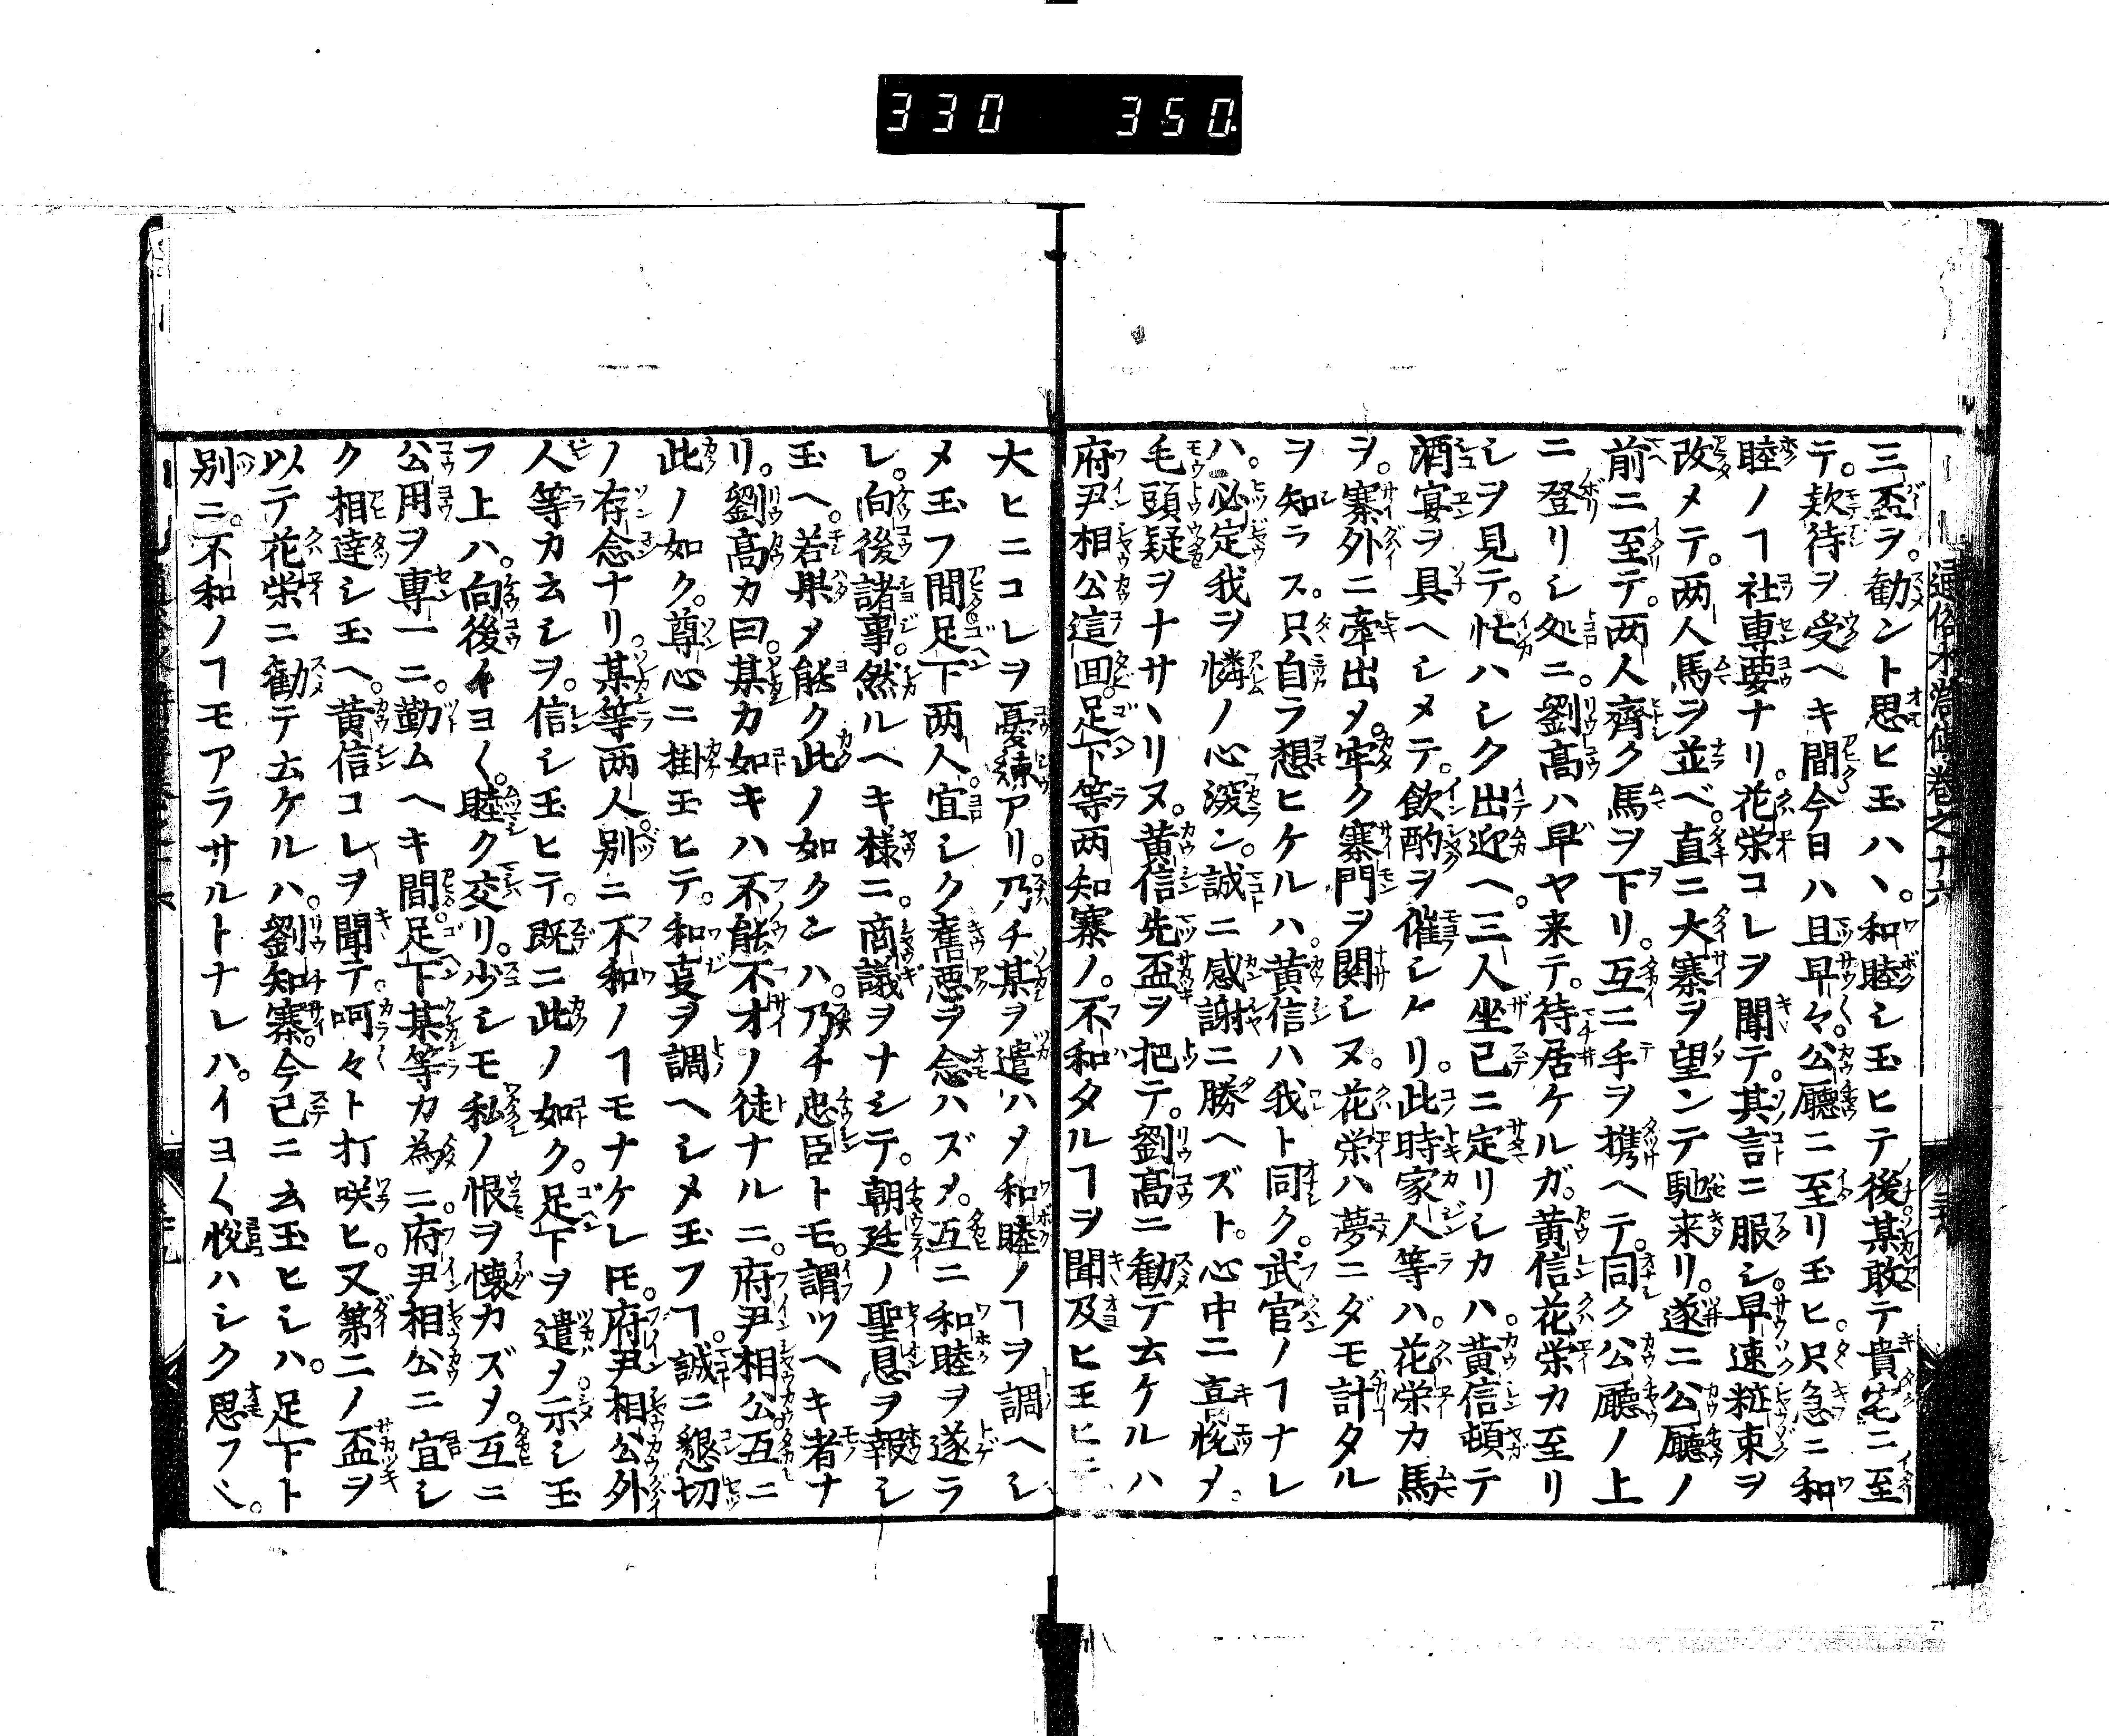 330 350
通俗水滸傳巻之十六
三盃ヲ。勸ント思ヒ玉ハヽ。和睦シ玉ヒテ後某敢テ貴宅ニ至
テ。欵待ヲ受ヘキ間今日ハ且早々。公廳ニ至リ玉ヒ。只急ニ和
睦ノヿ社専要ナリ。花栄コレヲ聞テ。其言ニ服シ。早速粧束ヲ
改メテ。两人馬ヲ並ベ。直ニ大寨ヲ望ンテ馳来リ。遂ニ公廳ノ
前ニ至テ。两人齊ク馬ヲ下リ。互ニ手ヲ携ヘテ。同ク公廳ノ上
ニ登リシ処ニ。劉髙ハ早ヤ来テ。待居ケルガ。黄信花栄カ至リ
シヲ見テ。忙ハシク出迎ヘ。三人坐已ニ定リシカハ。黄信頓テ
酒宴ヲ具ヘシメテ。飲酌ヲ催シケリ。此時家人等ハ。花栄カ馬
ヲ。寨外ニ牽出メ。牢ク寨門ヲ関シヌ。花栄ハ夢ニダモ計タル
ヲ知ラス。只自ラ想ヒケルハ。黄信ハ我ト同ク。武官ノヿナレ
ハ。必定我ヲ憐ノ心深ン。誠ニ感謝ニ勝ヘズト。心中ニ喜悅メ。
毛頭疑ヲナサヽリヌ。黄信先盃ヲ把テ。劉髙ニ勸テ云ケルハ
府尹相公這回。足下等两知寨ノ。不和タルヿヲ聞及ヒ玉ヒテ
大ヒニコレヲ憂煉アリ。乃チ某ヲ遣ハメ和睦ノヿヲ調ヘシ
メ玉フ間足下两人。宜シク舊悪ヲ念ハズメ。互ニ和睦ヲ遂ラ
レ。向後諸事。然ルヘキ様ニ。商議ヲナシテ。朝廷ノ聖恩ヲ報シ
玉ヘ。若果メ能ク此ノ如クシハ。乃チ忠臣トモ。謂ツヘキ者ナ
リ。劉髙カ曰。某カ如キハ不能不才ノ徒ナルニ。府尹相公。互ニ
此ノ如ク。尊心ニ掛玉ヒテ。和叓ヲ調ヘシメ玉フヿ。誠ニ懇切
ノ存念ナリ。某等两人別ニ不和ノヿモナケレ𪜈。府尹相公外
人等カ云シヲ。信シ玉ヒテ。既ニ此ノ如ク。足下ヲ遣メ示シ玉
フ上ハ。向後イヨ〱。睦ク交リ。少シモ私ノ恨ヲ懐カズメ。互ニ
公用ヲ専一ニ。勤ムヘキ間足下某等カ為ニ。府尹相公ニ宜シ
ク相達シ玉ヘ。黄信コレヲ聞テ。呵々ト打咲ヒ。又第二ノ盃ヲ
以テ花栄ニ勸テ云ケルハ。劉知寨。今已ニ云玉ヒシハ。足下ト
別ニ。不和ノヿモアラサルトナレハ。イヨ〱悅ハシク思フ〱。